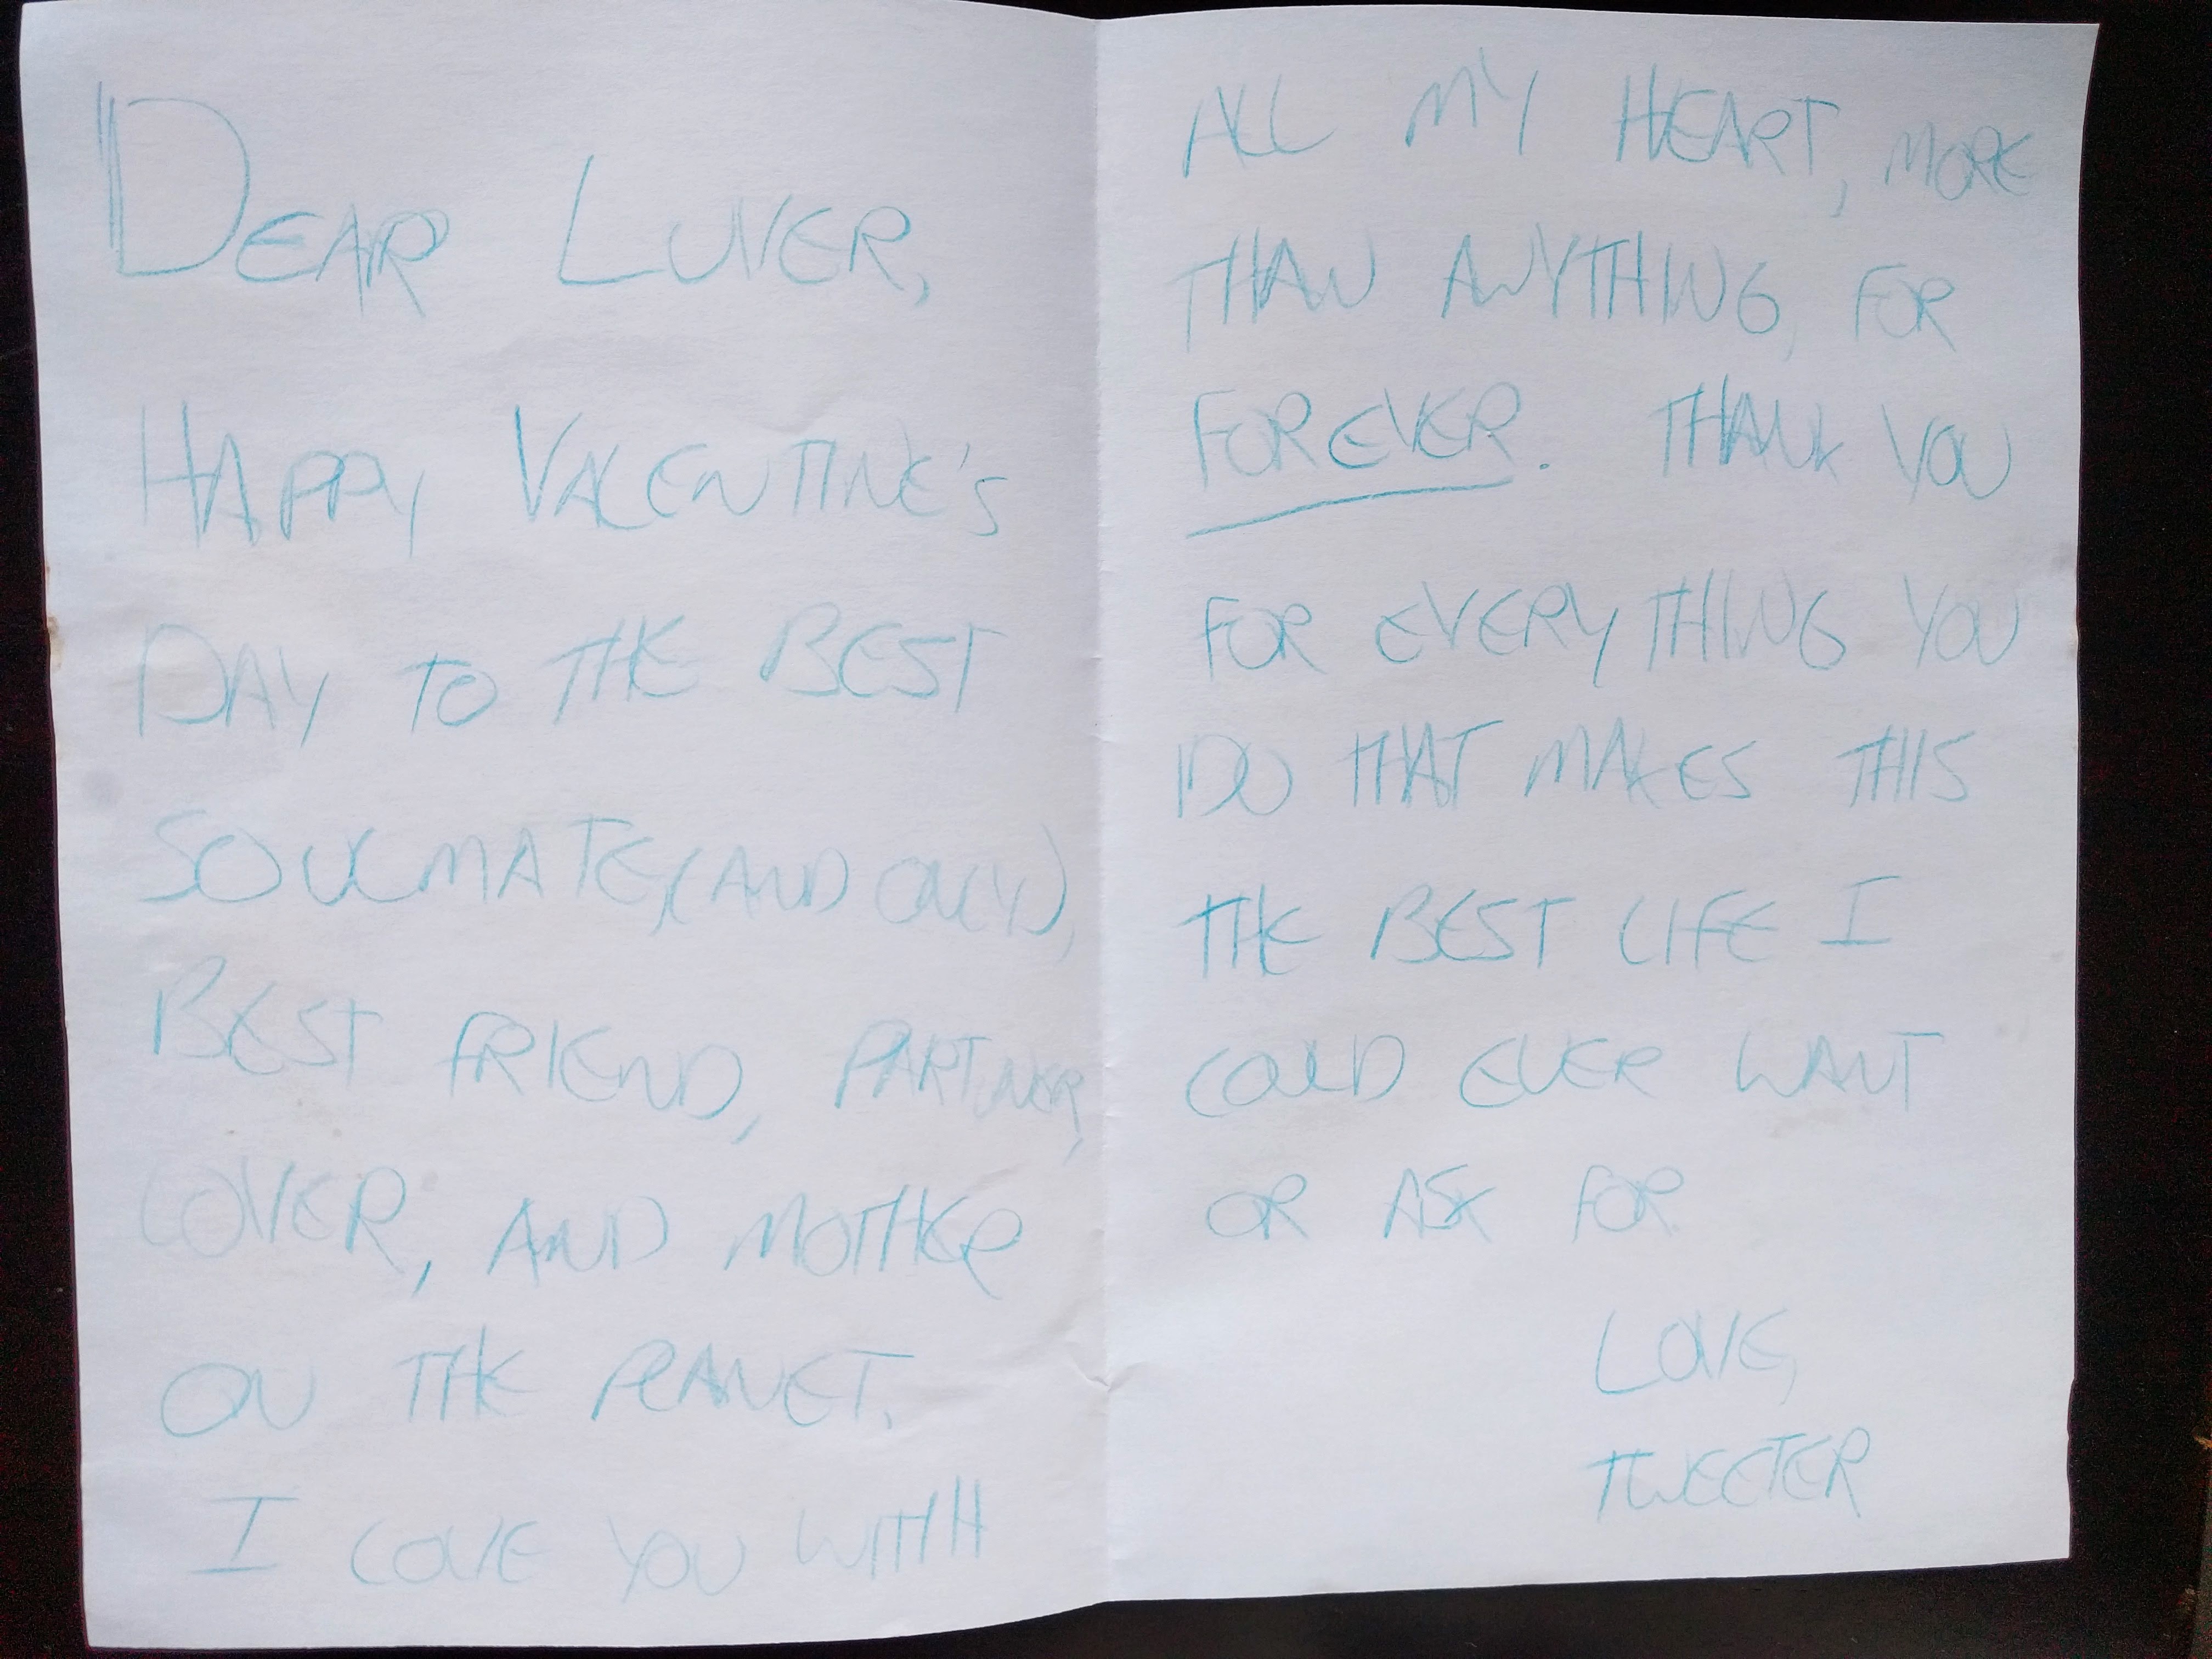 DEAR LUVER,
HAPPY VALENTINE'S
DAY TO THE BEST
SOULMATE,(AND ONLY),
BEST FRIEND, PARTNER,
LOVER, AND MOTHER
ON THE PLANET.
I LOVE YOU WITH
ALL MY HEART, MORE
THAN ANYTHING, FOR
FOREVER. THANK YOU
FOR EVERYTHING YOU
DO THAT MAKES THIS
THE BEST LIFE I
COULD EVER WANT
OR ASK FOR.
LOVE,
TWEETER